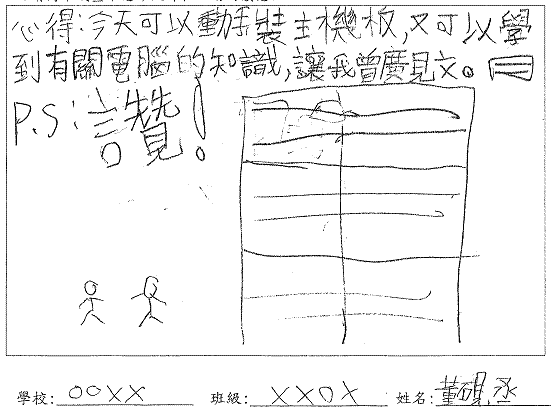 心得:今天可以動手裝主機板,又可以學
到有關電腦的知識,讓我曾廣見文。
P.S:讚!
學校: OOXX 班級: XXOX 姓名: 董硯丞